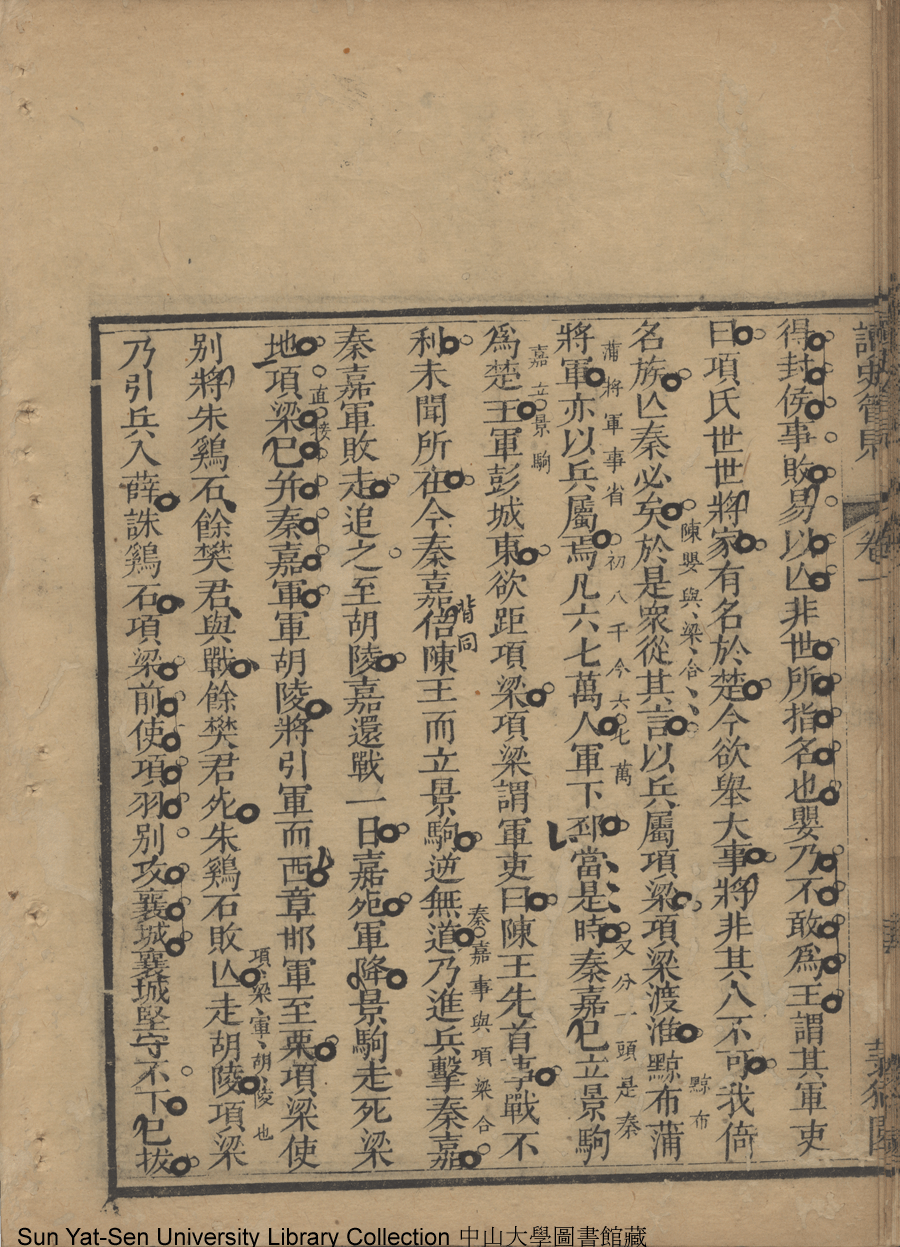 得封侯事敗易以亾非世所指名也嬰乃不敢爲王謂其軍吏
曰項氏世世將家有名於楚今欲舉大事將非其人不可我倚
名族亾秦必矣於是衆從其言以兵屬項梁項梁渡淮黥布蒲
陳嬰與梁合
黥布
將軍亦以兵屬焉凡六七萬人軍下邳當是時秦嘉已立景駒
蒲將軍事省
初八千今六七萬
又分一頭是秦
嘉立景駒
爲楚王軍彭城東欲距項梁項梁謂軍吏曰陳王先首事戰不
利未聞所在今秦嘉倍陳王而立景駒逆無道乃進兵擊秦嘉
背同
秦嘉事與項梁合
秦嘉軍敗走追之至胡陵嘉還戰一日嘉死軍降景駒走死梁
地項梁已并秦嘉軍軍胡陵將引軍而西章邯軍至栗項梁使
直接
項梁軍胡陵也
別將朱鷄石餘樊君與戰餘樊君死朱鷄石敗亾走胡陵項梁
乃引兵入薛誅鷄石項梁前使項羽別攻襄城襄城堅守不下已拔
卷一
Sun Yat-Sen University Library Collection 中山大學圖書館藏